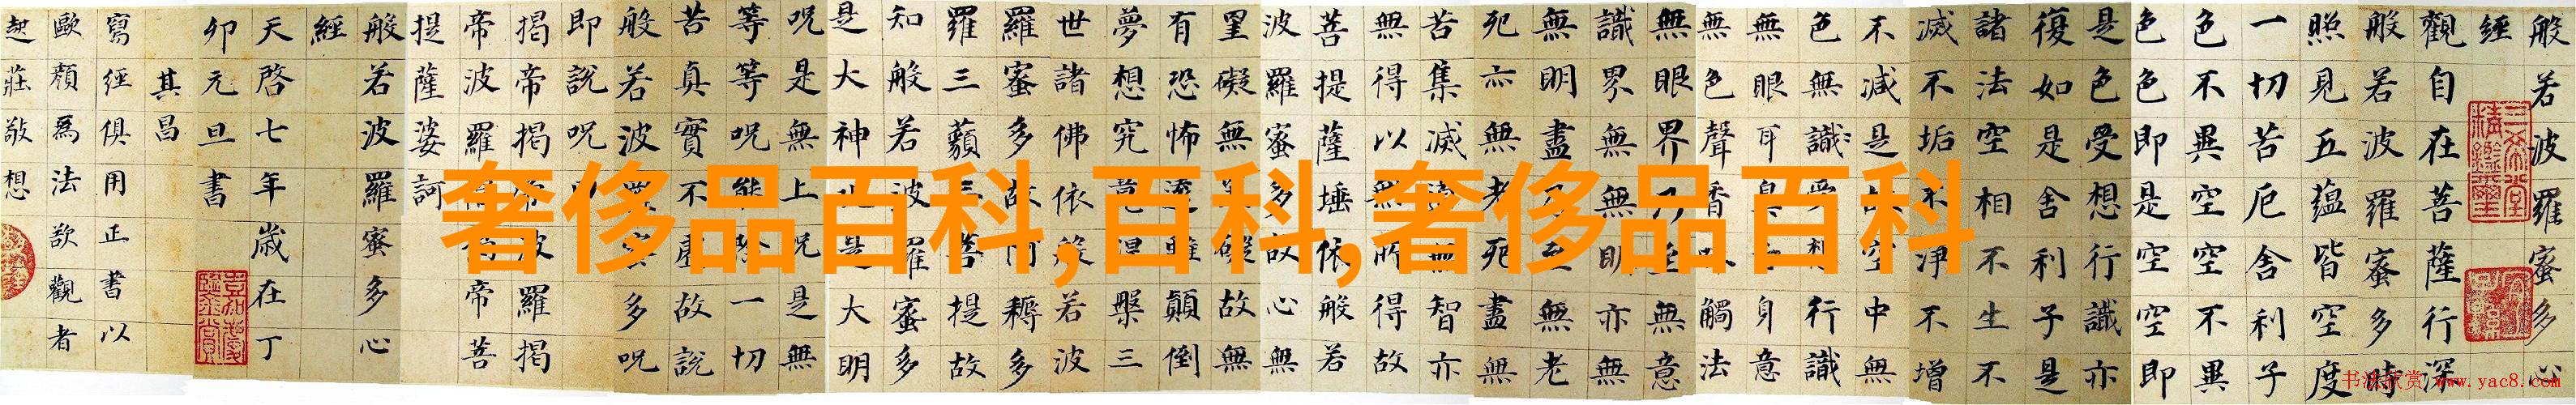 般若波羅蜜多心
經
觀自在菩薩行深
般若波羅蜜多時
照見五蘊皆空度
一切苦厄舍利子
色不異空空不異
色色即是空空即
是色受想行識亦
復如是舍利子是
諸法空相不生不
滅不垢不淨不增
不減是故空中無
色無識受想行識
無眼耳鼻舌身意
無色聲香味觸法
無眼界乃至無意
識界無無明亦無
無明盡乃至無老
死亦無老死盡無
苦集滅道無智亦
無得以無所得故
菩提薩埵依般若
波羅蜜多故心無
罣礙無罣礙故無
有恐怖遠離顛倒
夢想究竟涅槃三
世諸佛依般若波
羅蜜多故阿耨多
羅三藐三菩提故
知般若波羅蜜多
是大神咒是大明
咒是無上咒是無
等等咒能除一切
苦真實不虛故說
般若波羅蜜多咒
即說咒曰
揭帝揭帝波羅揭
帝波羅僧揭帝菩
提薩婆訶
般若波羅蜜多心
經
天啓七年歲在丁
卯元旦書
其昌
寫經俱用正書以
歐顏爲法欲觀者
起莊敬想
三希堂精鑑璽
宜子孫
嘉慶鑑賞
奢侈品百科,百科,奢侈品百科
书法欣赏 www.yac8.com